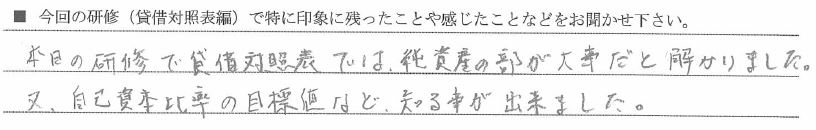 ■ 今回の研修（貸借対照表編）で特に印象に残ったことや感じたことなどをお聞かせ下さい。
本日の研修で貸借対照表では、純資産の部が大事だと解かりました。
又、自己資本比率の目標値など、知る事が出来ました。